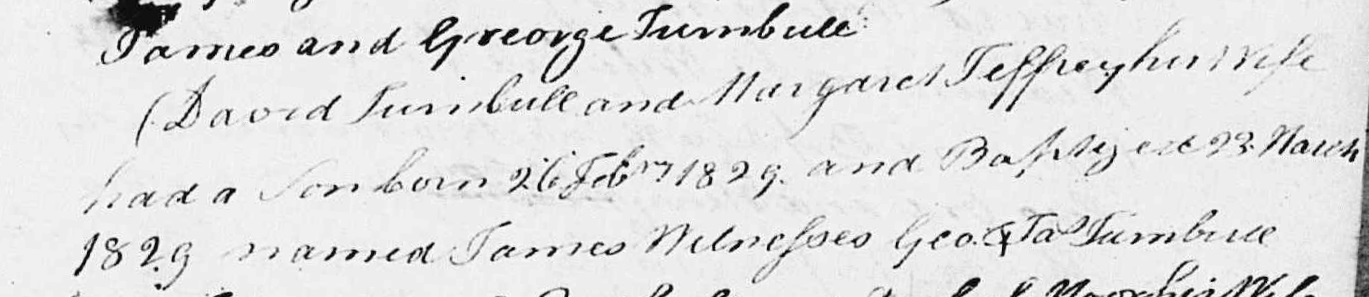 James and George Turnbull
(David Turnbull and Margaret Jeffrey his Wife
had a Son born 26 Febry 1829. and Baptized 23 March
1829 named James Witnesses Geo. & Jas Turnbull
his Wife